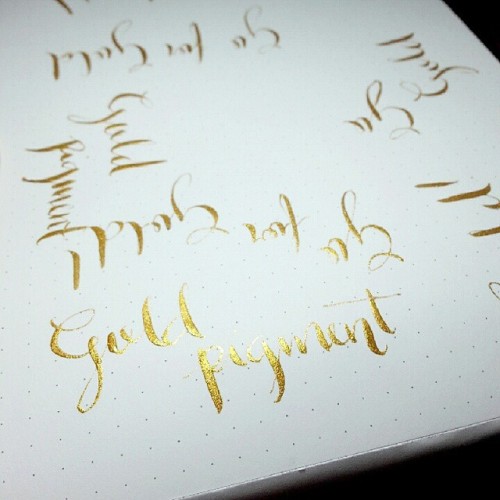 Go for Gold
Gold
Go
Gold
pigment
Go for Gold!
Gold
pigment